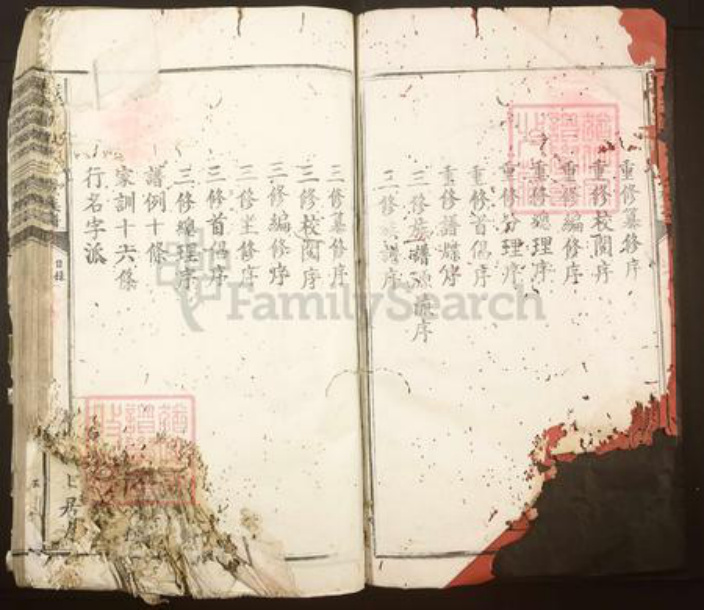 重修纂修序
重修校閱序
重修編修序
重修總理序
重修分理序
重修首倡序
重修譜牒序
三修族譜源流序
三修族譜序
三修纂修序
三修校閱序
三修編修序
三修主修序
三修首倡序
三修總理序
譜例十條
家訓十六條
行名字派
目錄
FamilySearch